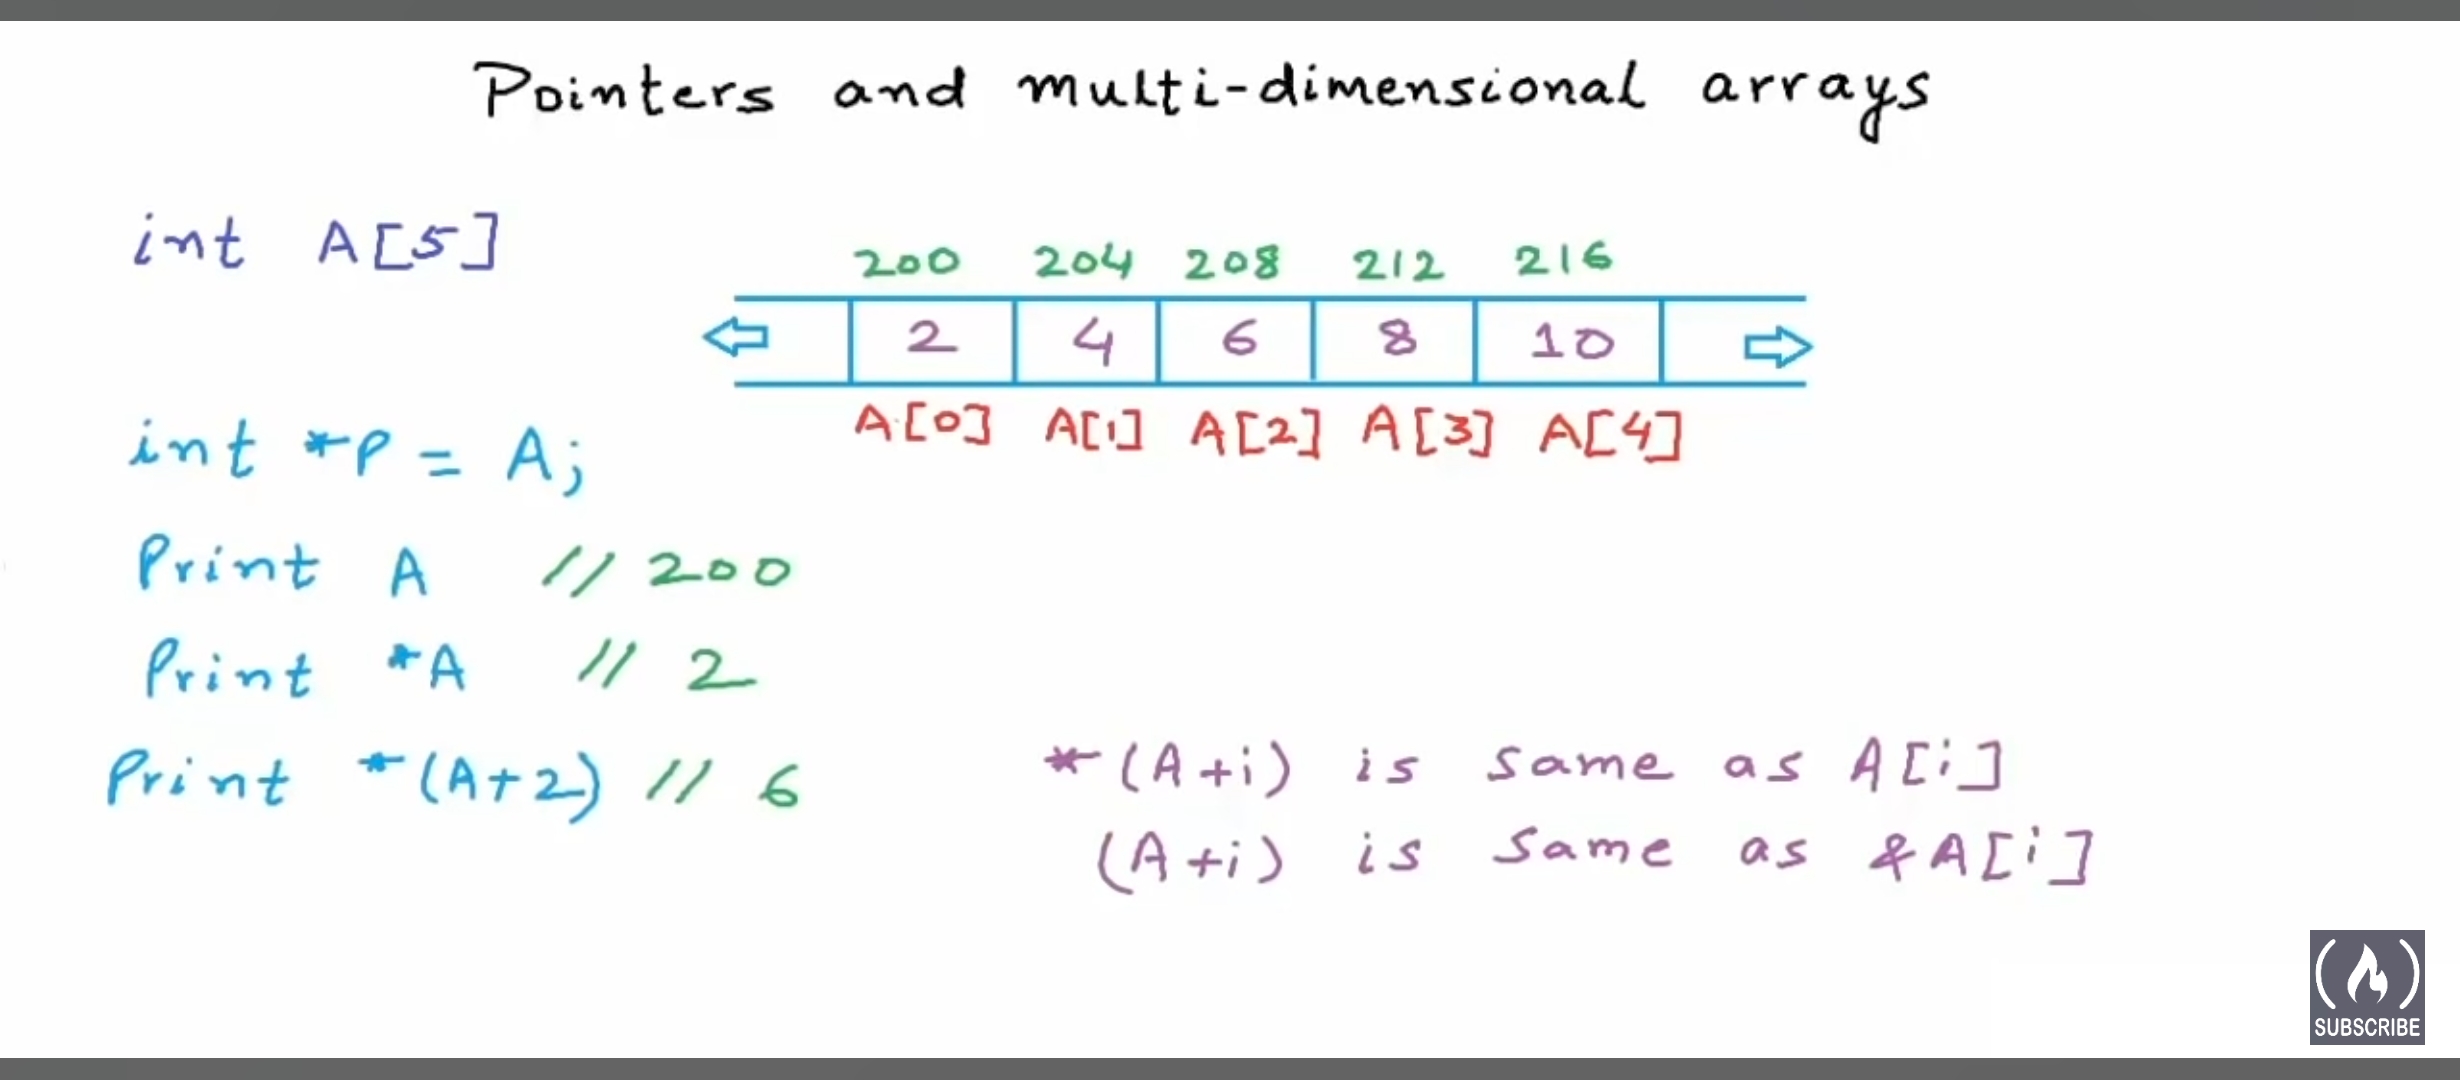 Pointers and multi-dimensional arrays
int A[5]
200 204 208 212 216
2 4 6 8 10
A[0] A[1] A[2] A[3] A[4]
int *p = A;
Print A // 200
Print *A // 2
Print *(A+2) // 6
*(A+i) is same as A[i]
(A+i) is same as &A[i]
SUBSCRIBE